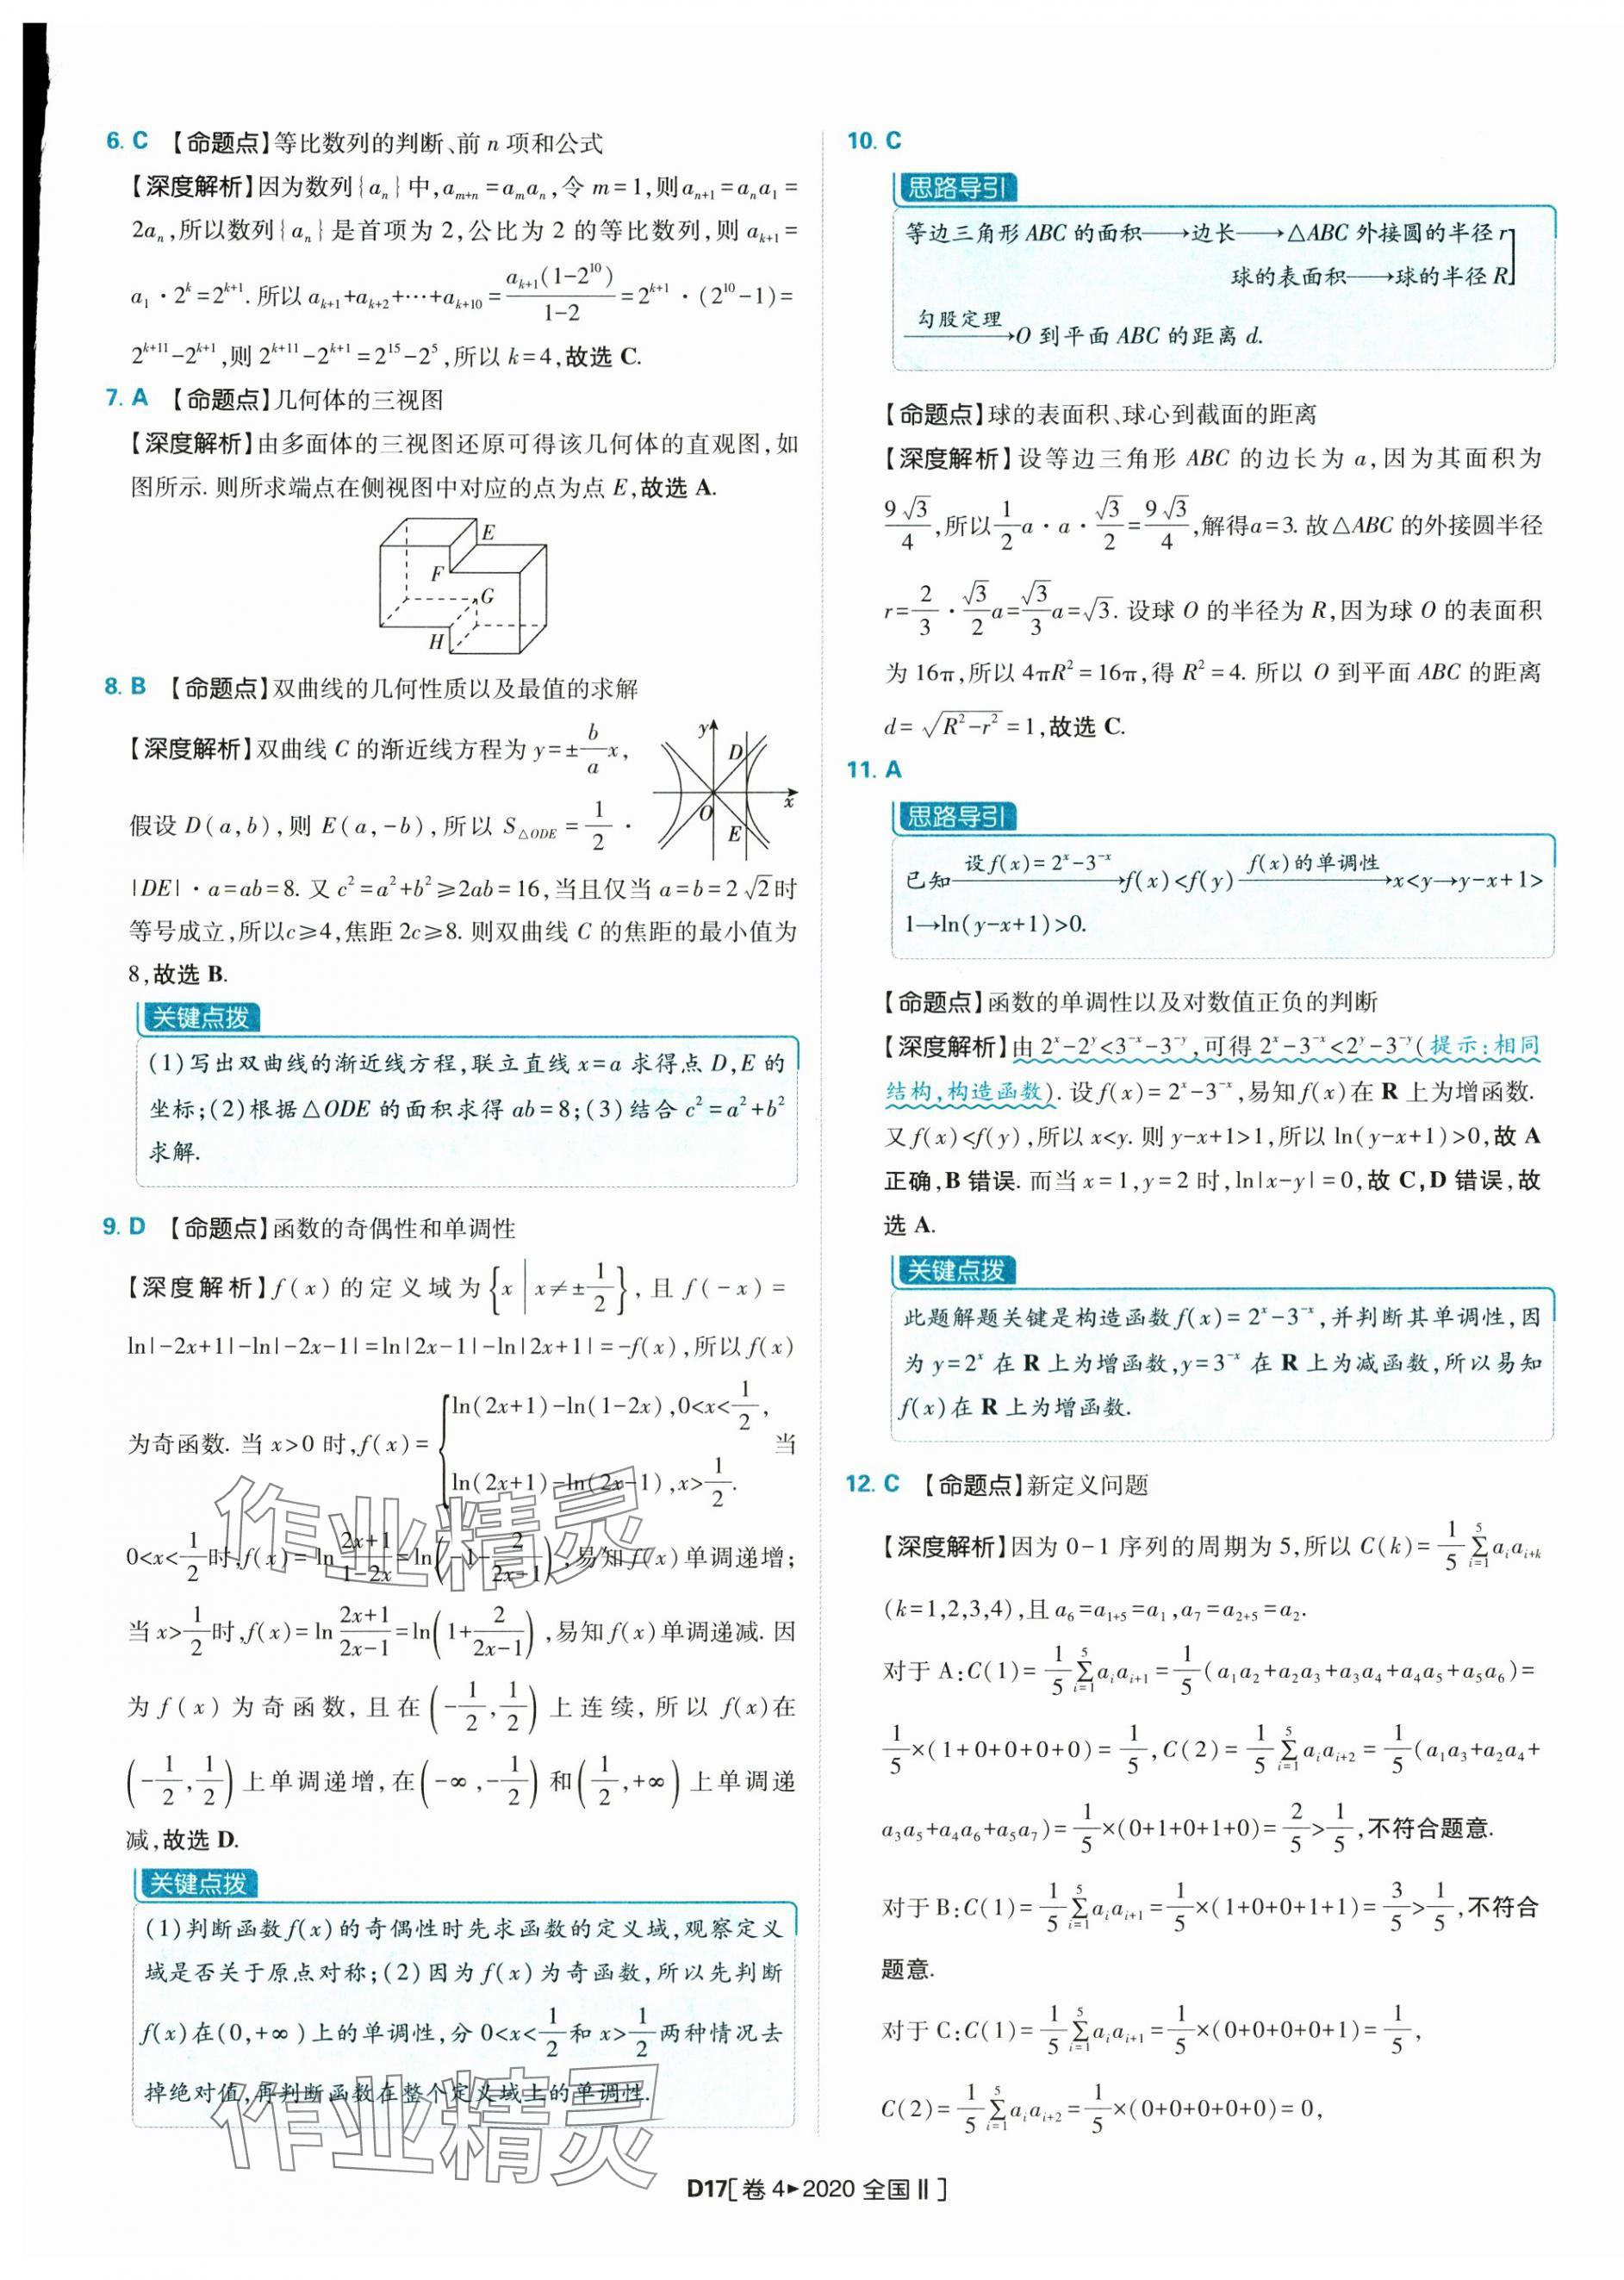 6. C 【命题点】等比数列的判断、前 n 项和公式
【深度解析】因为数列{aₙ}中,aₘ₊ₙ=aₘaₙ,令 m=1,则aₙ₊₁=aₙa₁=
2aₙ,所以数列{aₙ}是首项为 2,公比为 2 的等比数列,则 aₖ₊₁=
a₁·2^k=2^(k+1). 所以 aₖ₊₁+aₖ₊₂+…+aₖ₊₁₀=aₖ₊₁(1-2^10)/(1-2)=2^(k+1)·(2^10-1)=
2^(k+11)-2^(k+1),则 2^(k+11)-2^(k+1)=2^15-2^5,所以 k=4,故选 C.
7. A 【命题点】几何体的三视图
【深度解析】由多面体的三视图还原可得该几何体的直观图,如
图所示. 则所求端点在侧视图中对应的点为点 E,故选 A.
E
F
G
H
8. B 【命题点】双曲线的几何性质以及最值的求解
【深度解析】双曲线 C 的渐近线方程为 y=±(b/a)x,
假设 D(a,b),则 E(a,-b),所以 S△ODE=1/2·
y
D
O
x
E
|DE|·a=ab=8. 又 c²=a²+b²≥2ab=16,当且仅当 a=b=2√2时
等号成立,所以c≥4,焦距 2c≥8. 则双曲线 C 的焦距的最小值为
8,故选 B.
关键点拨
(1)写出双曲线的渐近线方程,联立直线 x=a 求得点 D,E 的
坐标;(2)根据△ODE 的面积求得 ab=8;(3)结合 c²=a²+b²
求解.
9. D 【命题点】函数的奇偶性和单调性
【深度解析】f(x)的定义域为{x|x≠±1/2},且 f(-x)=
ln|-2x+1|-ln|-2x-1|=ln|2x-1|-ln|2x+1|=-f(x),所以f(x)
为奇函数. 当 x>0 时,f(x)={ln(2x+1)-ln(1-2x),0<x<1/2, 当
ln(2x+1)-ln(2x-1),x>1/2.
0<x<1/2时,f(x)=ln (2x+1)/(1-2x)=ln(-1-2/(2x-1)),易知f(x)单调递增;
当 x>1/2时,f(x)=ln (2x+1)/(2x-1)=ln(1+2/(2x-1)),易知f(x)单调递减. 因
为 f(x)为奇函数,且在(-1/2,1/2)上连续,所以 f(x)在
(-1/2,1/2)上单调递增,在(-∞,-1/2)和(1/2,+∞)上单调递
减,故选 D.
关键点拨
(1)判断函数f(x)的奇偶性时先求函数的定义域,观察定义
域是否关于原点对称;(2)因为 f(x)为奇函数,所以先判断
f(x)在(0,+∞)上的单调性,分 0<x<1/2和 x>1/2两种情况去
掉绝对值,再判断函数在整个定义域上的单调性.
10. C
思路导引
等边三角形 ABC 的面积→边长→△ABC 外接圆的半径 r
球的表面积→球的半径 R
勾股定理
→O 到平面 ABC 的距离 d.
【命题点】球的表面积、球心到截面的距离
【深度解析】设等边三角形 ABC 的边长为 a,因为其面积为
9√3/4,所以1/2a·a·√3/2=9√3/4,解得a=3. 故△ABC 的外接圆半径
r=2/3·√3/2a=√3/3a=√3. 设球 O 的半径为 R,因为球 O 的表面积
为 16π,所以 4πR²=16π,得 R²=4. 所以 O 到平面 ABC 的距离
d=√(R²-r²)=1,故选 C.
11. A
思路导引
已知 —设f(x)=2^x-3^(-x)→ f(x)<f(y) —f(x)的单调性→ x<y→y-x+1>
1→ln(y-x+1)>0.
【命题点】函数的单调性以及对数值正负的判断
【深度解析】由 2^x-2^y<3^(-x)-3^(-y),可得 2^x-3^(-x)<2^y-3^(-y)(提示:相同
结构,构造函数). 设f(x)=2^x-3^(-x),易知f(x)在 R 上为增函数.
又 f(x)<f(y),所以 x<y. 则 y-x+1>1,所以 ln(y-x+1)>0,故 A
正确,B 错误. 而当 x=1,y=2 时,ln|x-y|=0,故 C,D 错误,故
选 A.
关键点拨
此题解题关键是构造函数f(x)=2^x-3^(-x),并判断其单调性,因
为 y=2^x 在 R 上为增函数,y=3^(-x) 在 R 上为减函数,所以易知
f(x)在 R 上为增函数.
12. C 【命题点】新定义问题
【深度解析】因为 0-1 序列的周期为 5,所以 C(k)=1/5 ∑(i=1→5) aᵢaᵢ₊ₖ
(k=1,2,3,4),且 a₆=a₁₊₅=a₁,a₇=a₂₊₅=a₂.
对于 A:C(1)=1/5 ∑(i=1→5) aᵢaᵢ₊₁=1/5(a₁a₂+a₂a₃+a₃a₄+a₄a₅+a₅a₆)=
1/5×(1+0+0+0+0)=1/5,C(2)=1/5 ∑(i=1→5) aᵢaᵢ₊₂=1/5(a₁a₃+a₂a₄+
a₃a₅+a₄a₆+a₅a₇)=1/5×(0+1+0+1+0)=2/5>1/5,不符合题意.
对于 B:C(1)=1/5 ∑(i=1→5) aᵢaᵢ₊₁=1/5×(1+0+0+1+1)=3/5>1/5,不符合
题意.
对于 C:C(1)=1/5 ∑(i=1→5) aᵢaᵢ₊₁=1/5×(0+0+0+0+1)=1/5,
C(2)=1/5 ∑(i=1→5) aᵢaᵢ₊₂=1/5×(0+0+0+0+0)=0,
作业精灵
作业精灵
D17[卷 4►2020 全国Ⅱ]